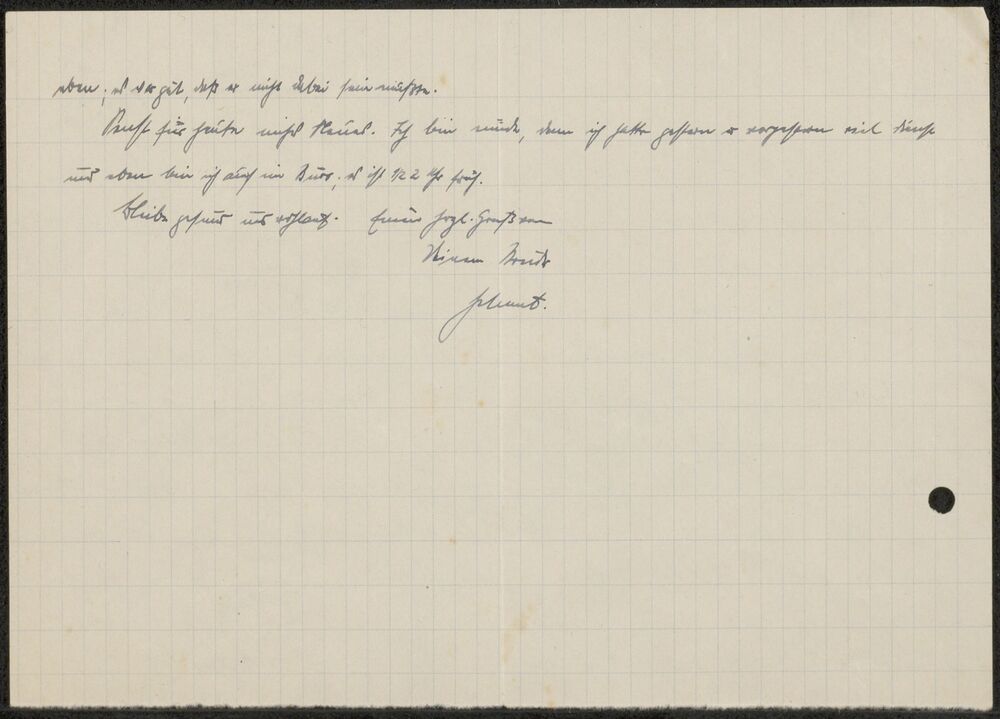 eben; es war gut, daß er nicht dabei sein mußte.
Sonst für heute nichts Neues. Ich bin müde, denn ich hatte gestern u vorgestern viel Dienst
und eben bin ich auch im Büro, es ist 1/2 2 Uhr früh.
Bleib gesund und wohlauf. Einen hrzl. Gruß von
Deinem Bruder
Helmut.